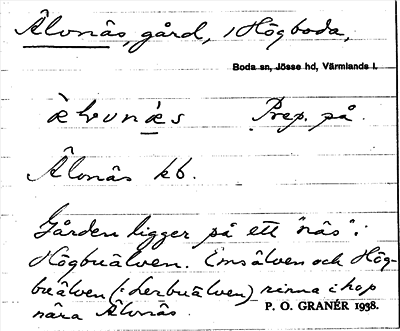 Älvnäs, gård, i Högboda,
Boda sn, Jösse hd, Värmlands l.
Prep. på.
Älvnäs kb.
Gården ligger på ett "näs" i
Högbuälven. Emsälven och Hög-
buälven (: Lerbuälven) rinna ihop
nära Älvnäs.
P. O. GRANÉR 1938.